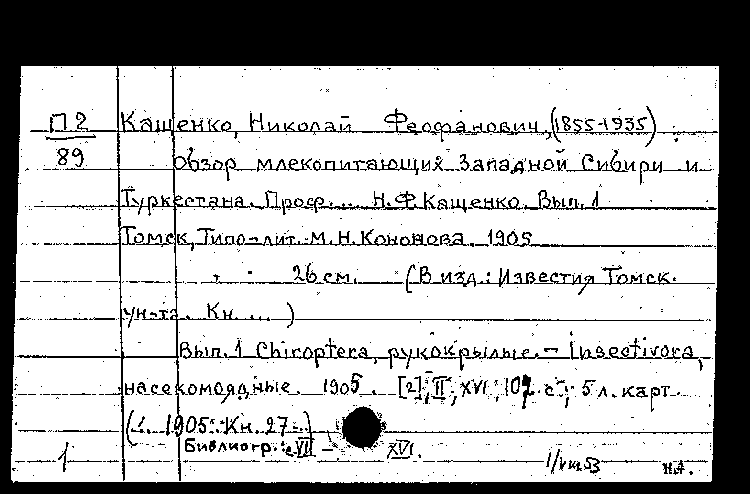 П2 Кащенко, Николай Феофанович, (1855-1935)
89 Обзор млекопитающих Западной Сибири и
Туркестана. Проф. ... Н.Ф. Кащенко. Вып. 1
Томск, Типо-лит. М.Н. Кононова. 1905
26 см. (В изд.: Известия Томск.
ун-та. Кн. ... )
Вып. 1 Chiroptera, рукокрылые. - Insectivora,
насекомоядные. 1905. [2], II, XVI, 107 с.; 5 л. карт.
( . 1905. Кн. 27 .)
Библиогр.: с VII - XVI.
1 1/VIII 53 н.А.